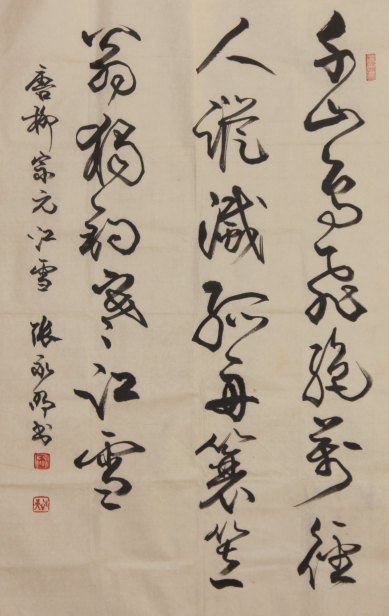 千山鳥飛絕萬徑
人蹤滅孤舟簑笠
翁獨釣寒江雪
唐柳宗元江雪 張永明书